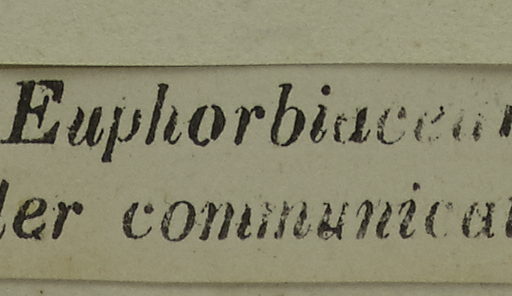 Euphorbiacea
ler communica